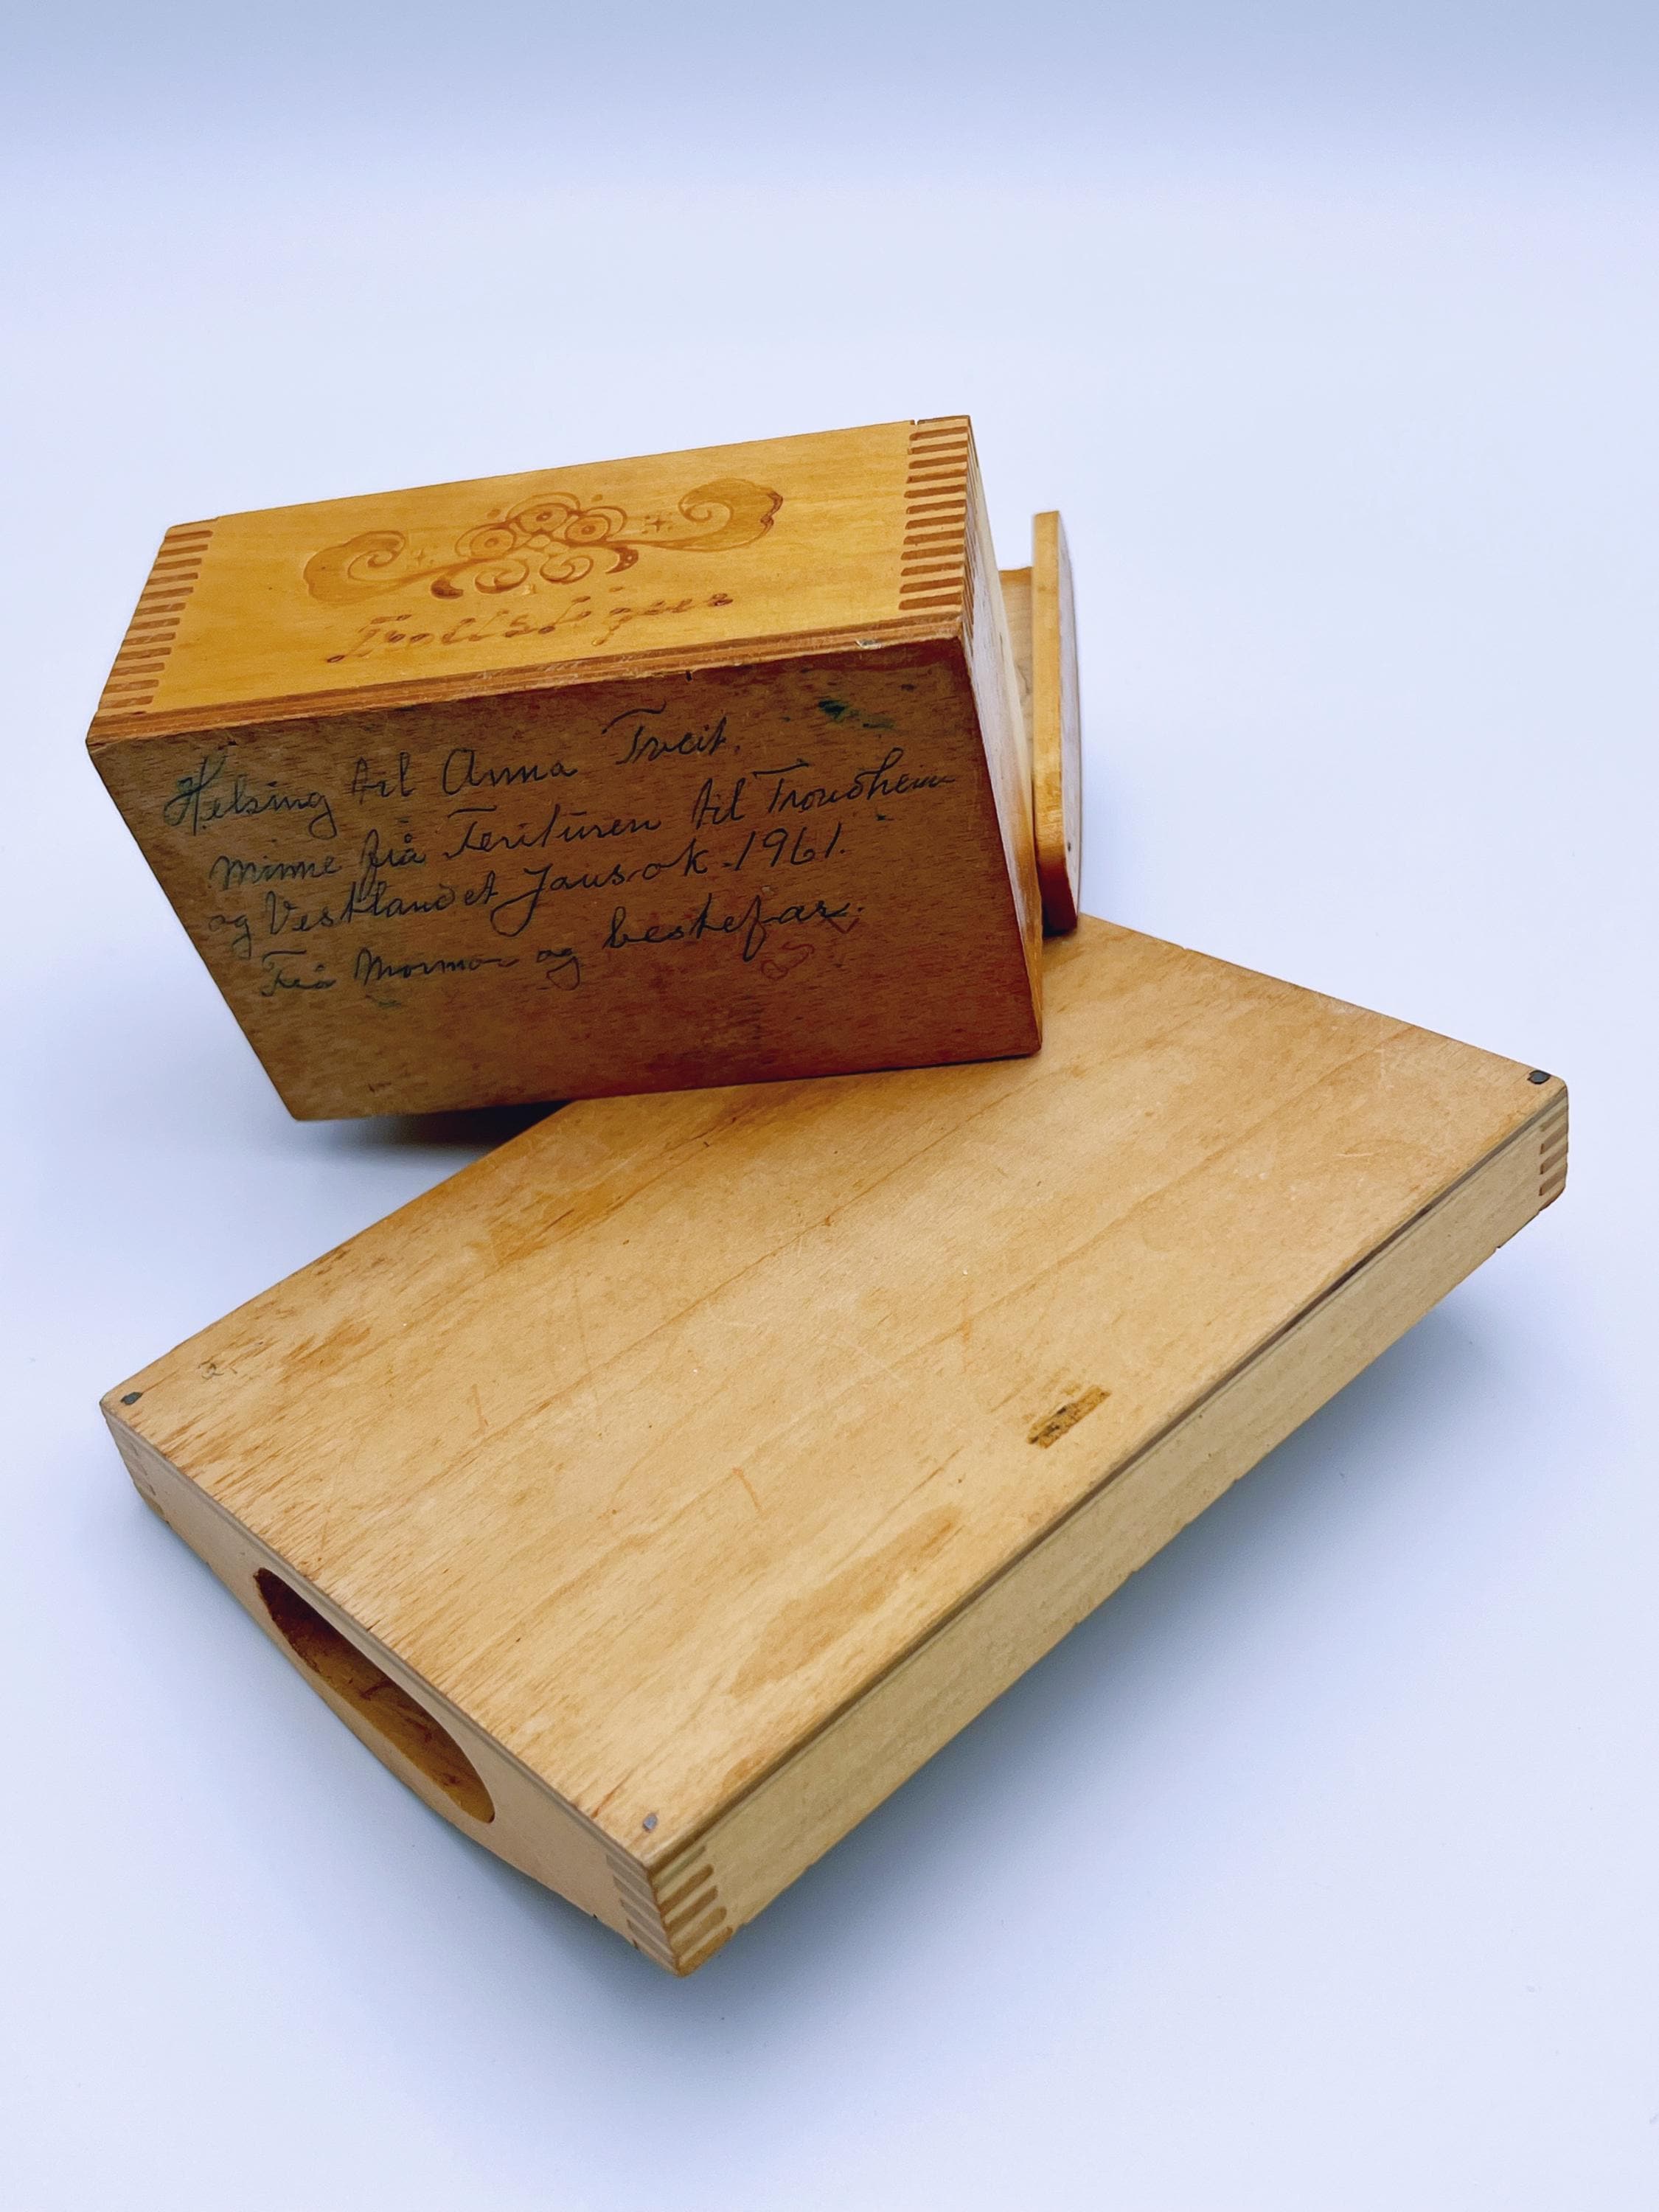 Trollstigen
Helsing til Anna Tveit.
Minne frå Ferituren til Trondheim
og Vestlandet Jaus-ok-1961.
Frå Mormor og bestefar.